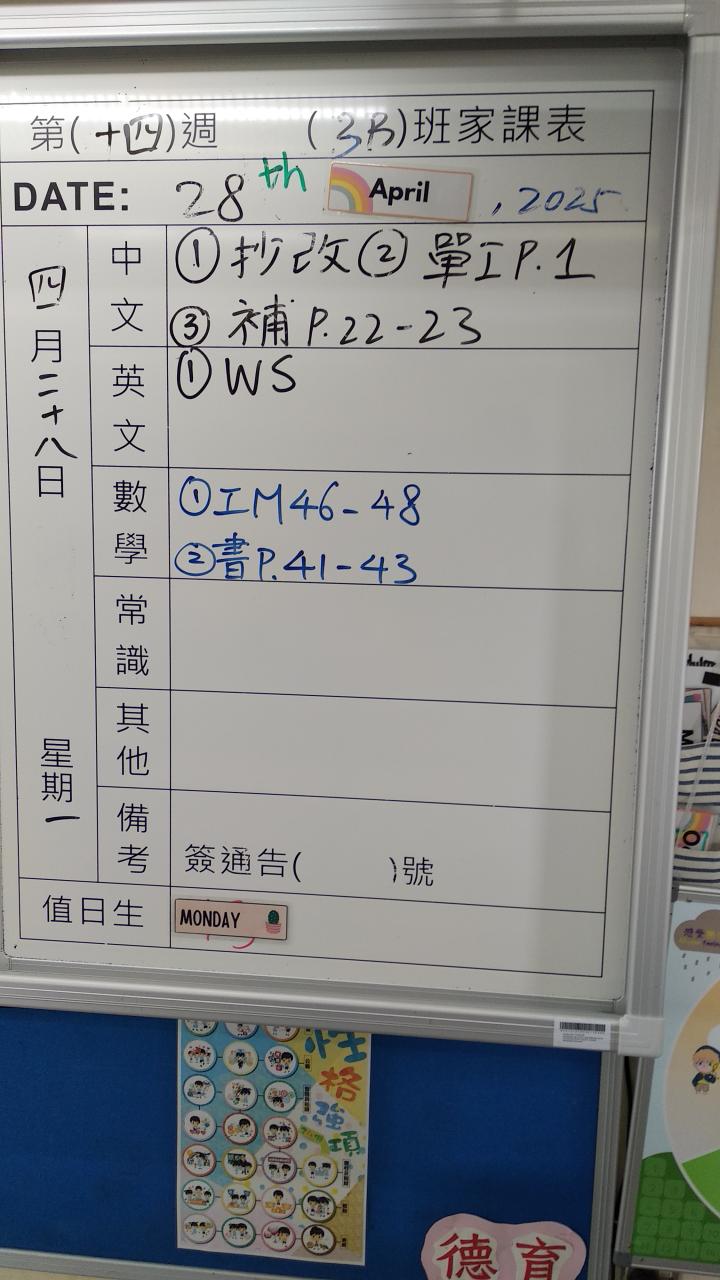 第(十四)週 (3B)班家課表
DATE: 28th April, 2025
四月二十八日 星期一
中文 ①抄改②單工P.1
③補P.22-23
英文 ①WS
數學 ①工M46-48
②書P.41-43
常識
其他
備考 簽通告( )號
值日生 MONDAY
性格強項
德育